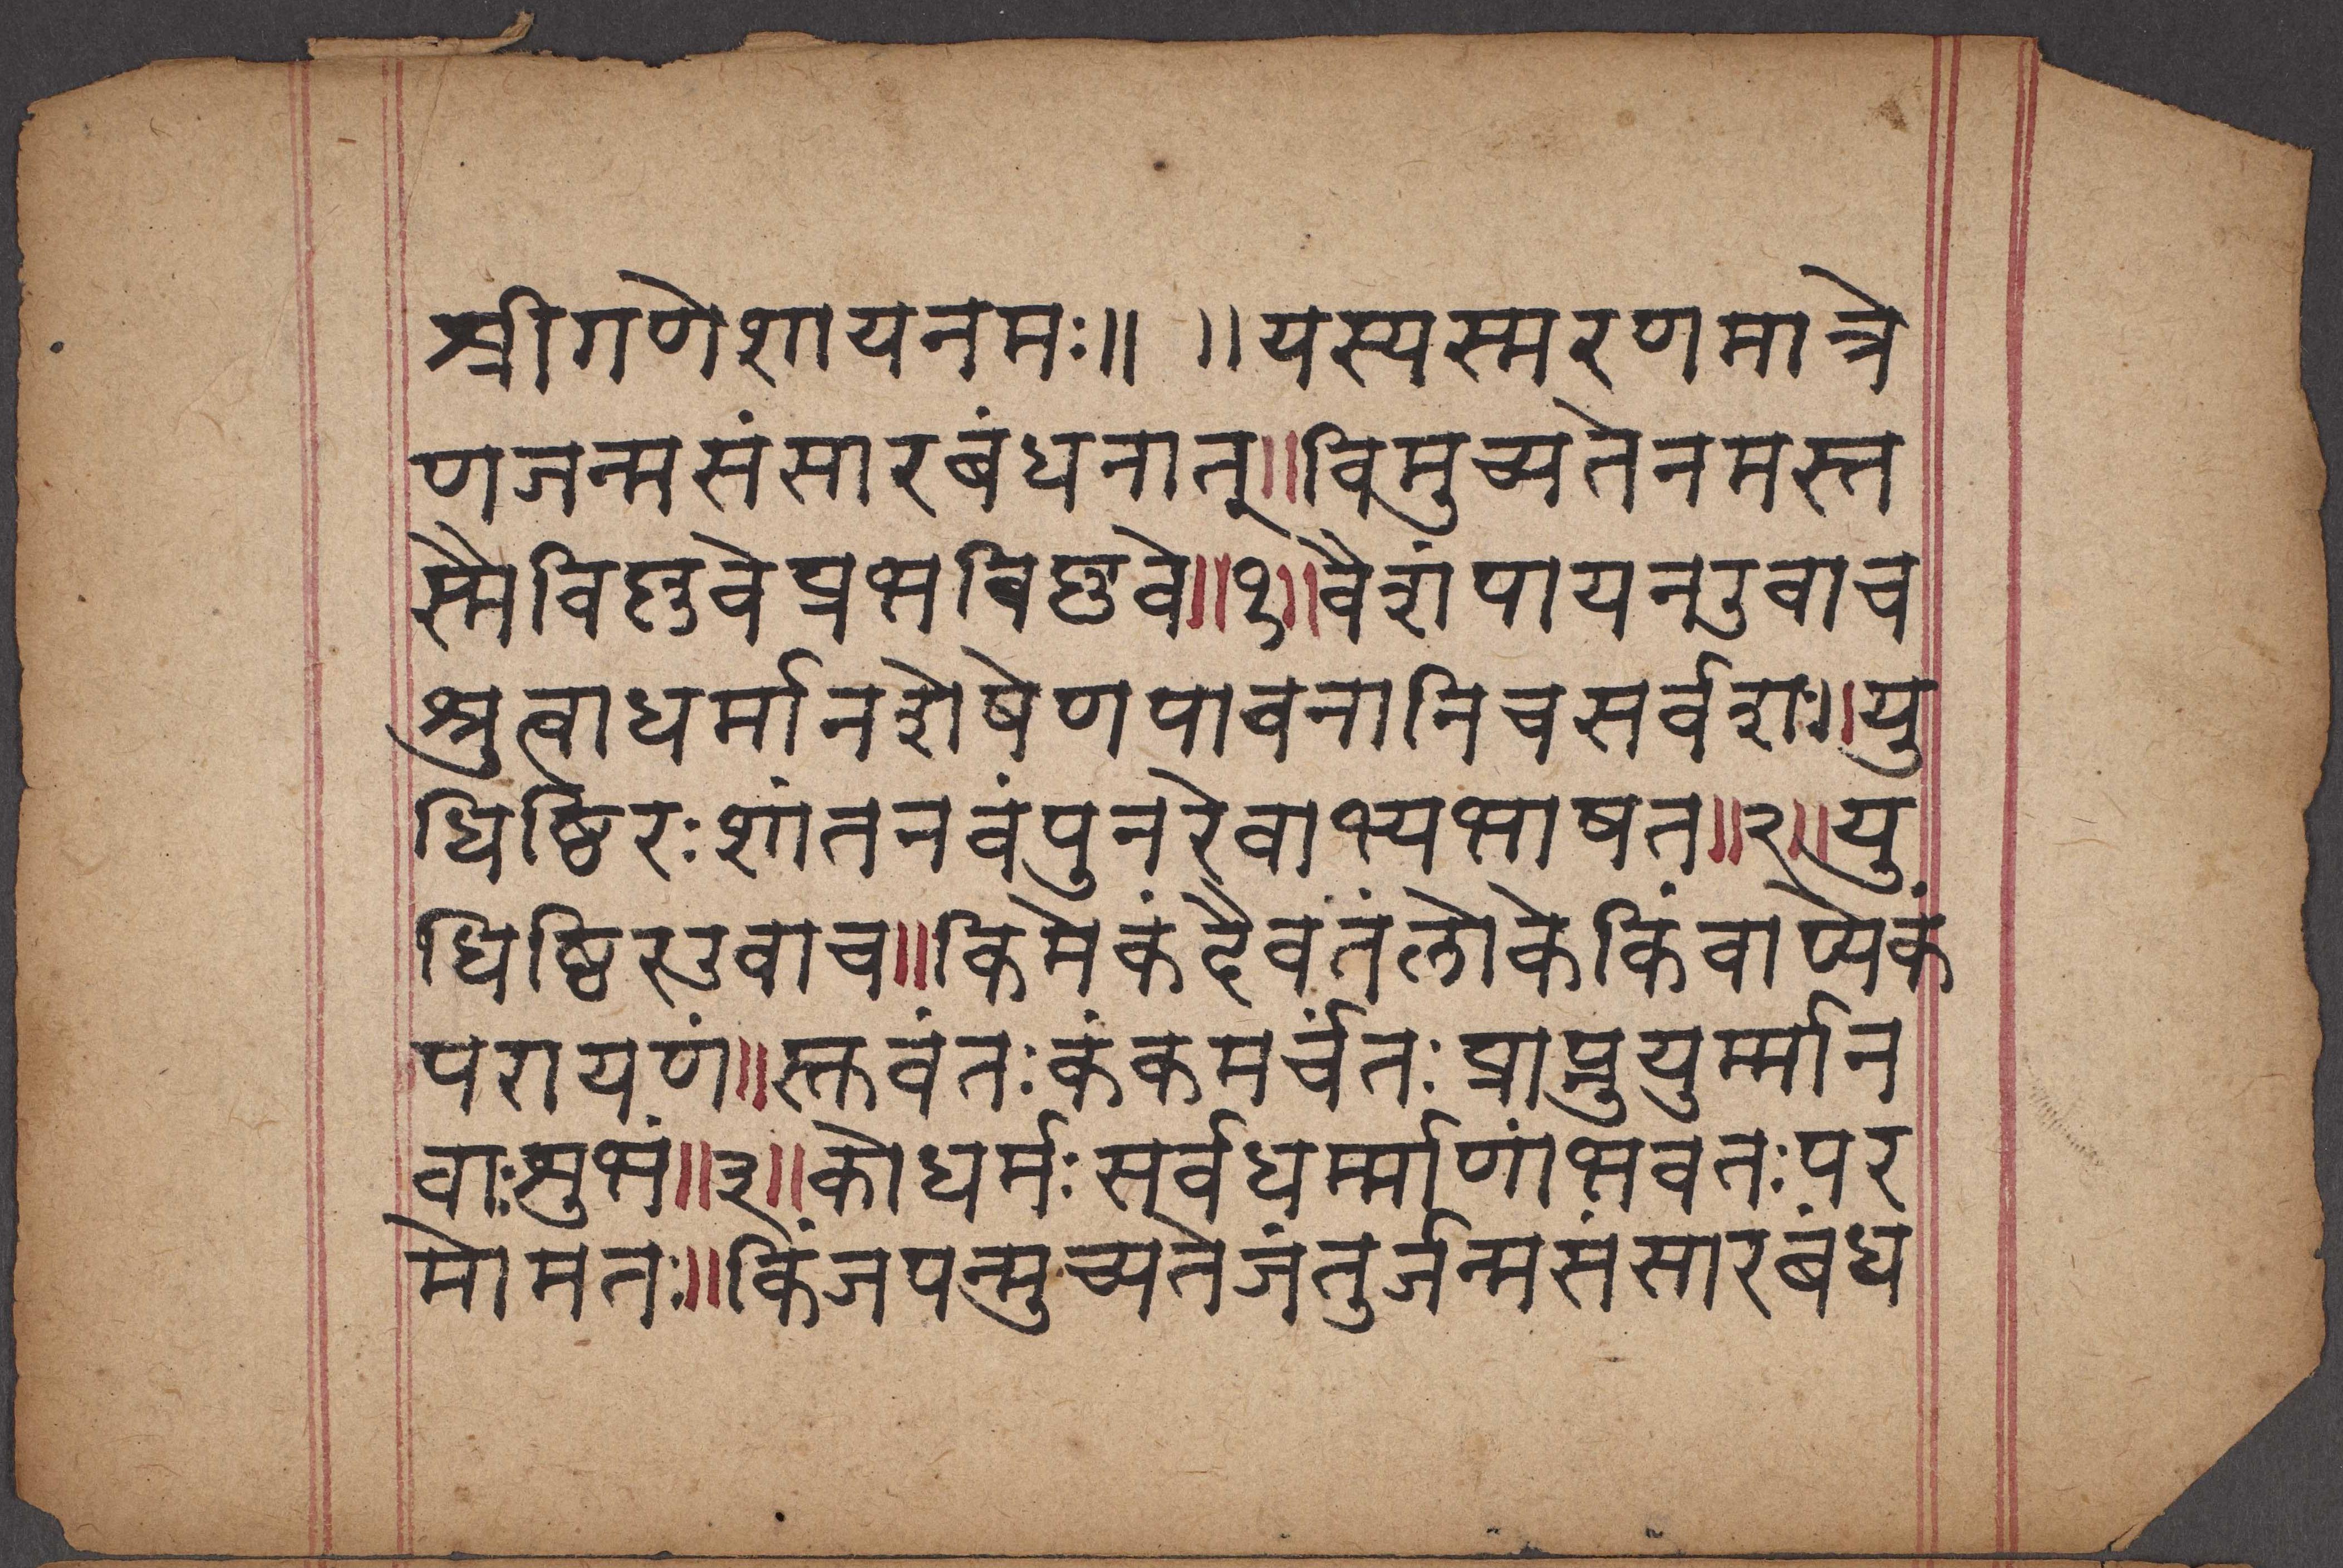 श्रीगणेशायनमः॥ ॥यस्यस्मरणमात्रे
णजन्मसंसारबंधनात्॥विमुच्यतेनमस्त
स्मैविष्णुवेप्रभविष्णुवे॥१॥वैशंपायनउवाच
श्रुत्वाधर्मानशेषेणपावनानिचसर्वशः॥यु
धिष्ठिरःशांतनवंपुनरेवाभ्यभाषत॥२॥यु
धिष्ठिरउवाच॥किमेकंदैवतंलोकेकिंवाप्येकं
परायणं॥स्तवंतःकंकमर्चंतःप्राप्नुयुर्म्मान
वाःसुभं॥३॥कोधर्मःसर्वधर्म्माणांभवतःपर
मोमतः॥किंजपन्मुच्यतेजंतुर्जन्मसंसारबंध